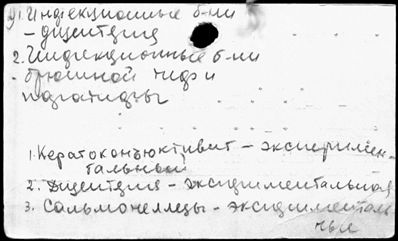 1. Инфекционные б-ни
- дизентерия
2. Инфекционные б-ни
- брюшной тиф и
паратифы
1. Кератоконъюктивит - эксперимен-
тальный
2. Дизентерия - экспериментальная
3. Сальмонеллезы - эксперименталь
ные